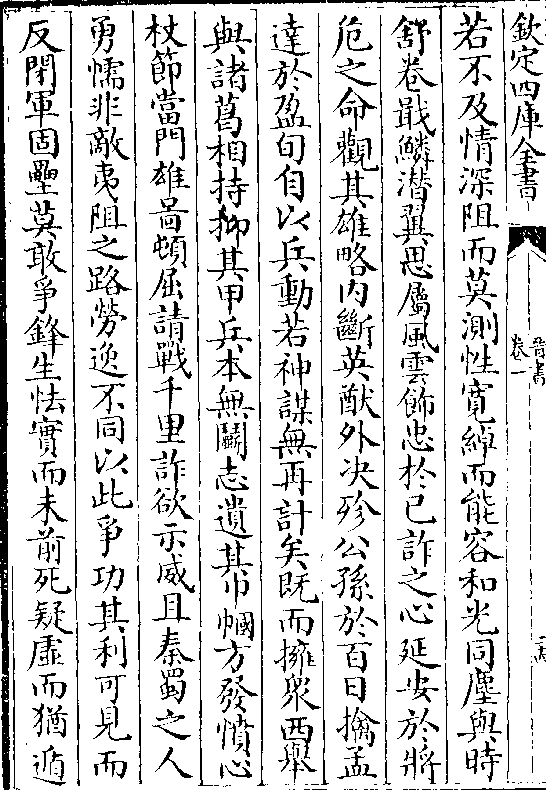 欽定四庫全書
晉書
卷一
若不及情深阻而莫測性寛綽而能容和光同塵與時
舒卷戢鱗潛翼思屬風雲飾忠於已詐之心延安於將
危之命觀其雄略内斷英猷外决殄公孫於百日擒孟
達於盈旬自以兵動若神謀無再計矣既而擁衆西舉
與諸葛相持抑其甲兵本無鬬志遺其巾幗方發憤心
杖節當門雄啚頓屈請戰千里詐欲示威且秦蜀之人
勇懦非敵夷阻之路勞逸不同以此爭功其利可見而
反閉軍固壘莫敢爭鋒生怯實而未前死疑虛而猶遁